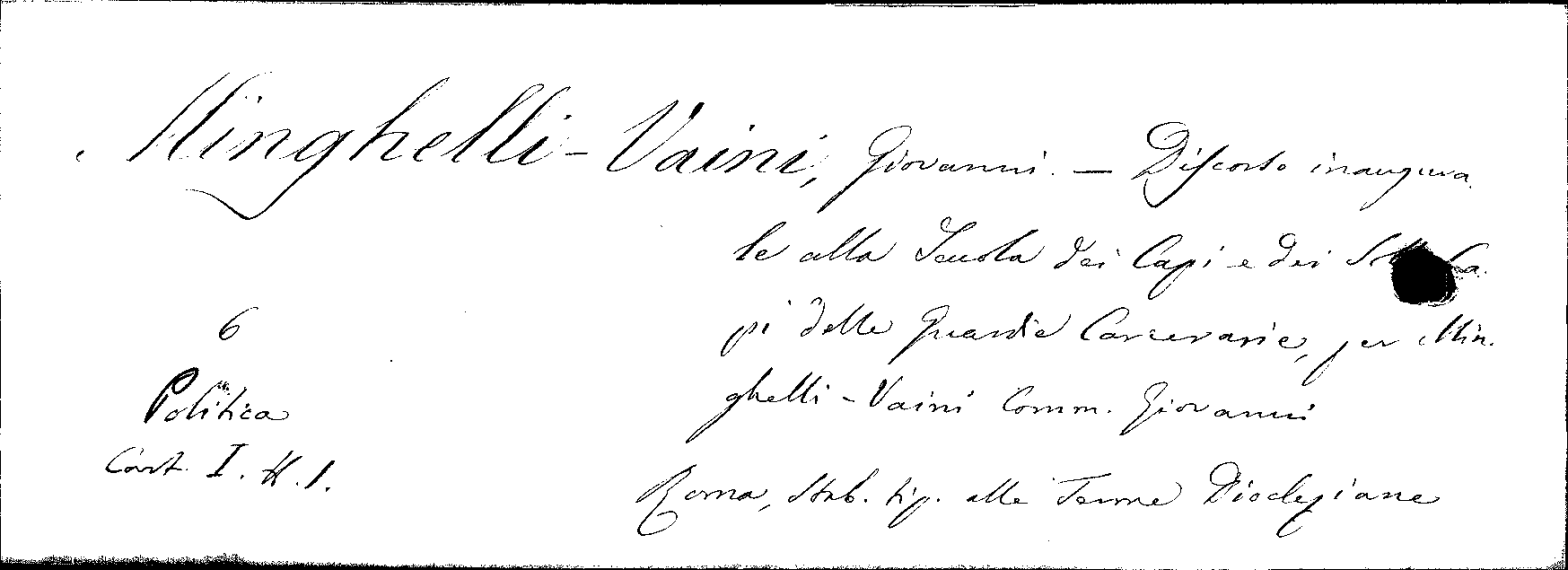 Minghelli-Vaini, Giovanni. — Discorso inaugura
le alla Scuola dei Capi e dei Sotto Ca.
pi delle Guardie Carcerarie, per Min.
ghelli-Vaini Comm. Giovanni
Roma, Stab. tip. alle Terme Diocleziane
6
Politica
Cart. I. H. 1.